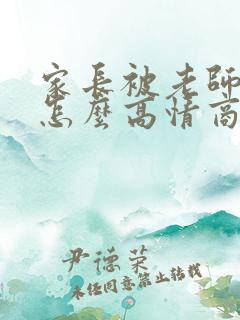 家长被老师
怎麼高情商
尹德荣
未经同意禁止转载